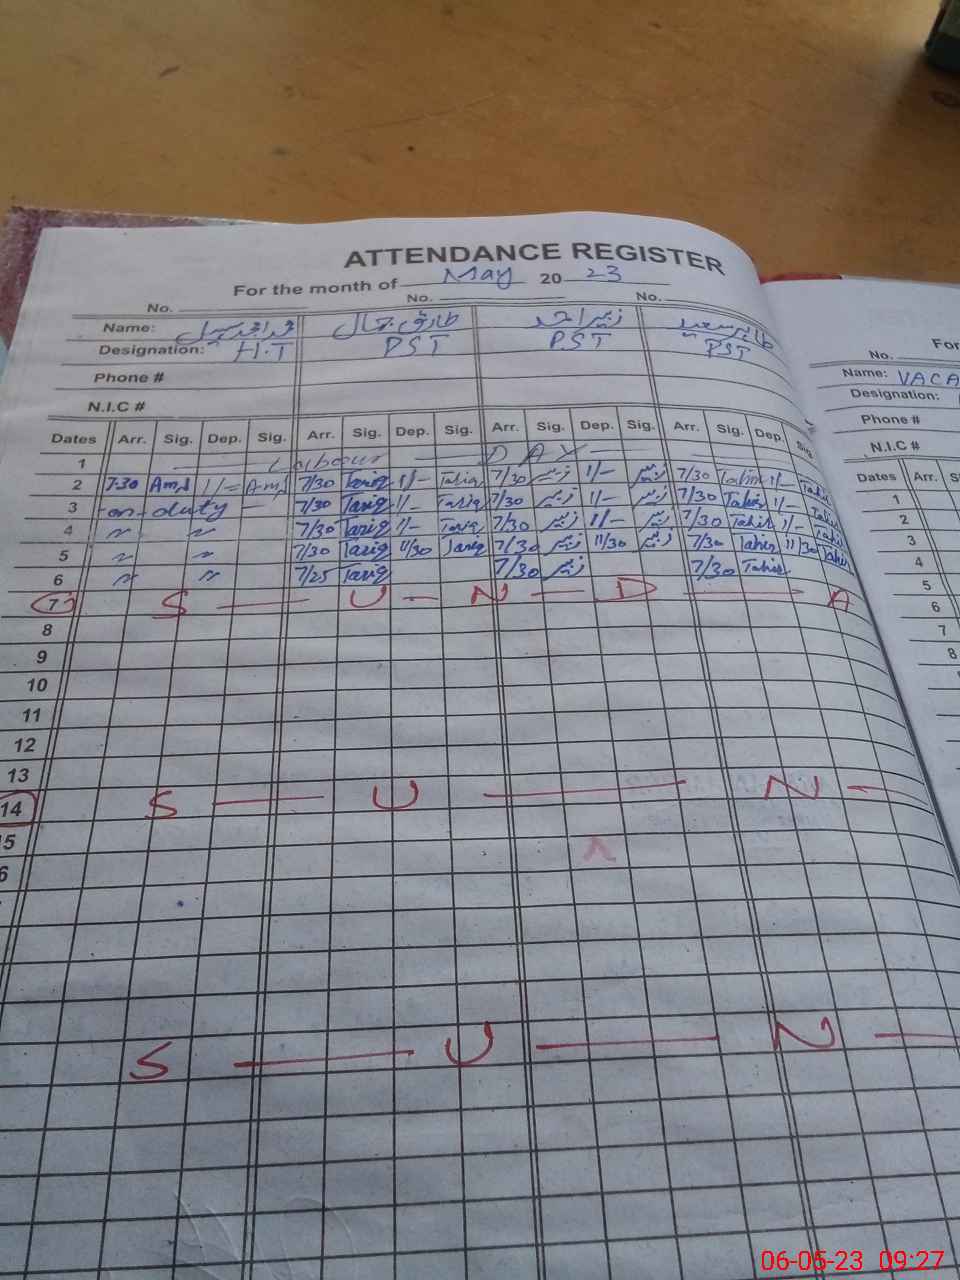 ATTENDANCE REGISTER
For the month of May 20 23
No. No. No.
Name: طارق جمال زبیر احمد طاہر سعید
Designation: H.T PST PST PST
Phone #
N.I.C #
Dates Arr. Sig. Dep. Sig. Arr. Sig. Dep. Sig. Arr. Sig. Dep. Sig. Arr. Sig. Dep. Sig.
1 Labour DAY
2 7.30 Amd 11/= Amd 7/30 Tariq 11/- Tariq 7/30 زبیر 11/- زبیر 7/30 Tahir 11/- Tahir
3 on duty 7/30 Tariq 11/- Tariq 7/30 زبیر 11/- زبیر 7/30 Tahir 11/- Tahir
4 " " 7/30 Tariq 11/- Tariq 7/30 زبیر 11/- زبیر 7/30 Tahir 11/- Tahir
5 " " 7/30 Tariq 11/30 Tariq 7/30 زبیر 11/30 زبیر 7/30 Tahir 11/30 Tahir
6 " " 7/25 Tariq 7/30 زبیر 7/30 Tahir
7 S U N D A
8
9
10
11
12
13
14 S U N
15
6
S U N
For
No.
Name: VACA
Designation:
Phone #
N.I.C #
Dates Arr. S
1
2
3
4
5
6
7
8
06-05-23 09:27